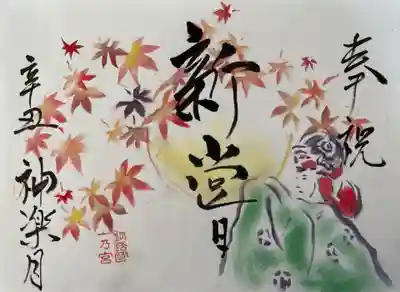 奉祝
新嘗
辛丑 神楽月
一乃宮